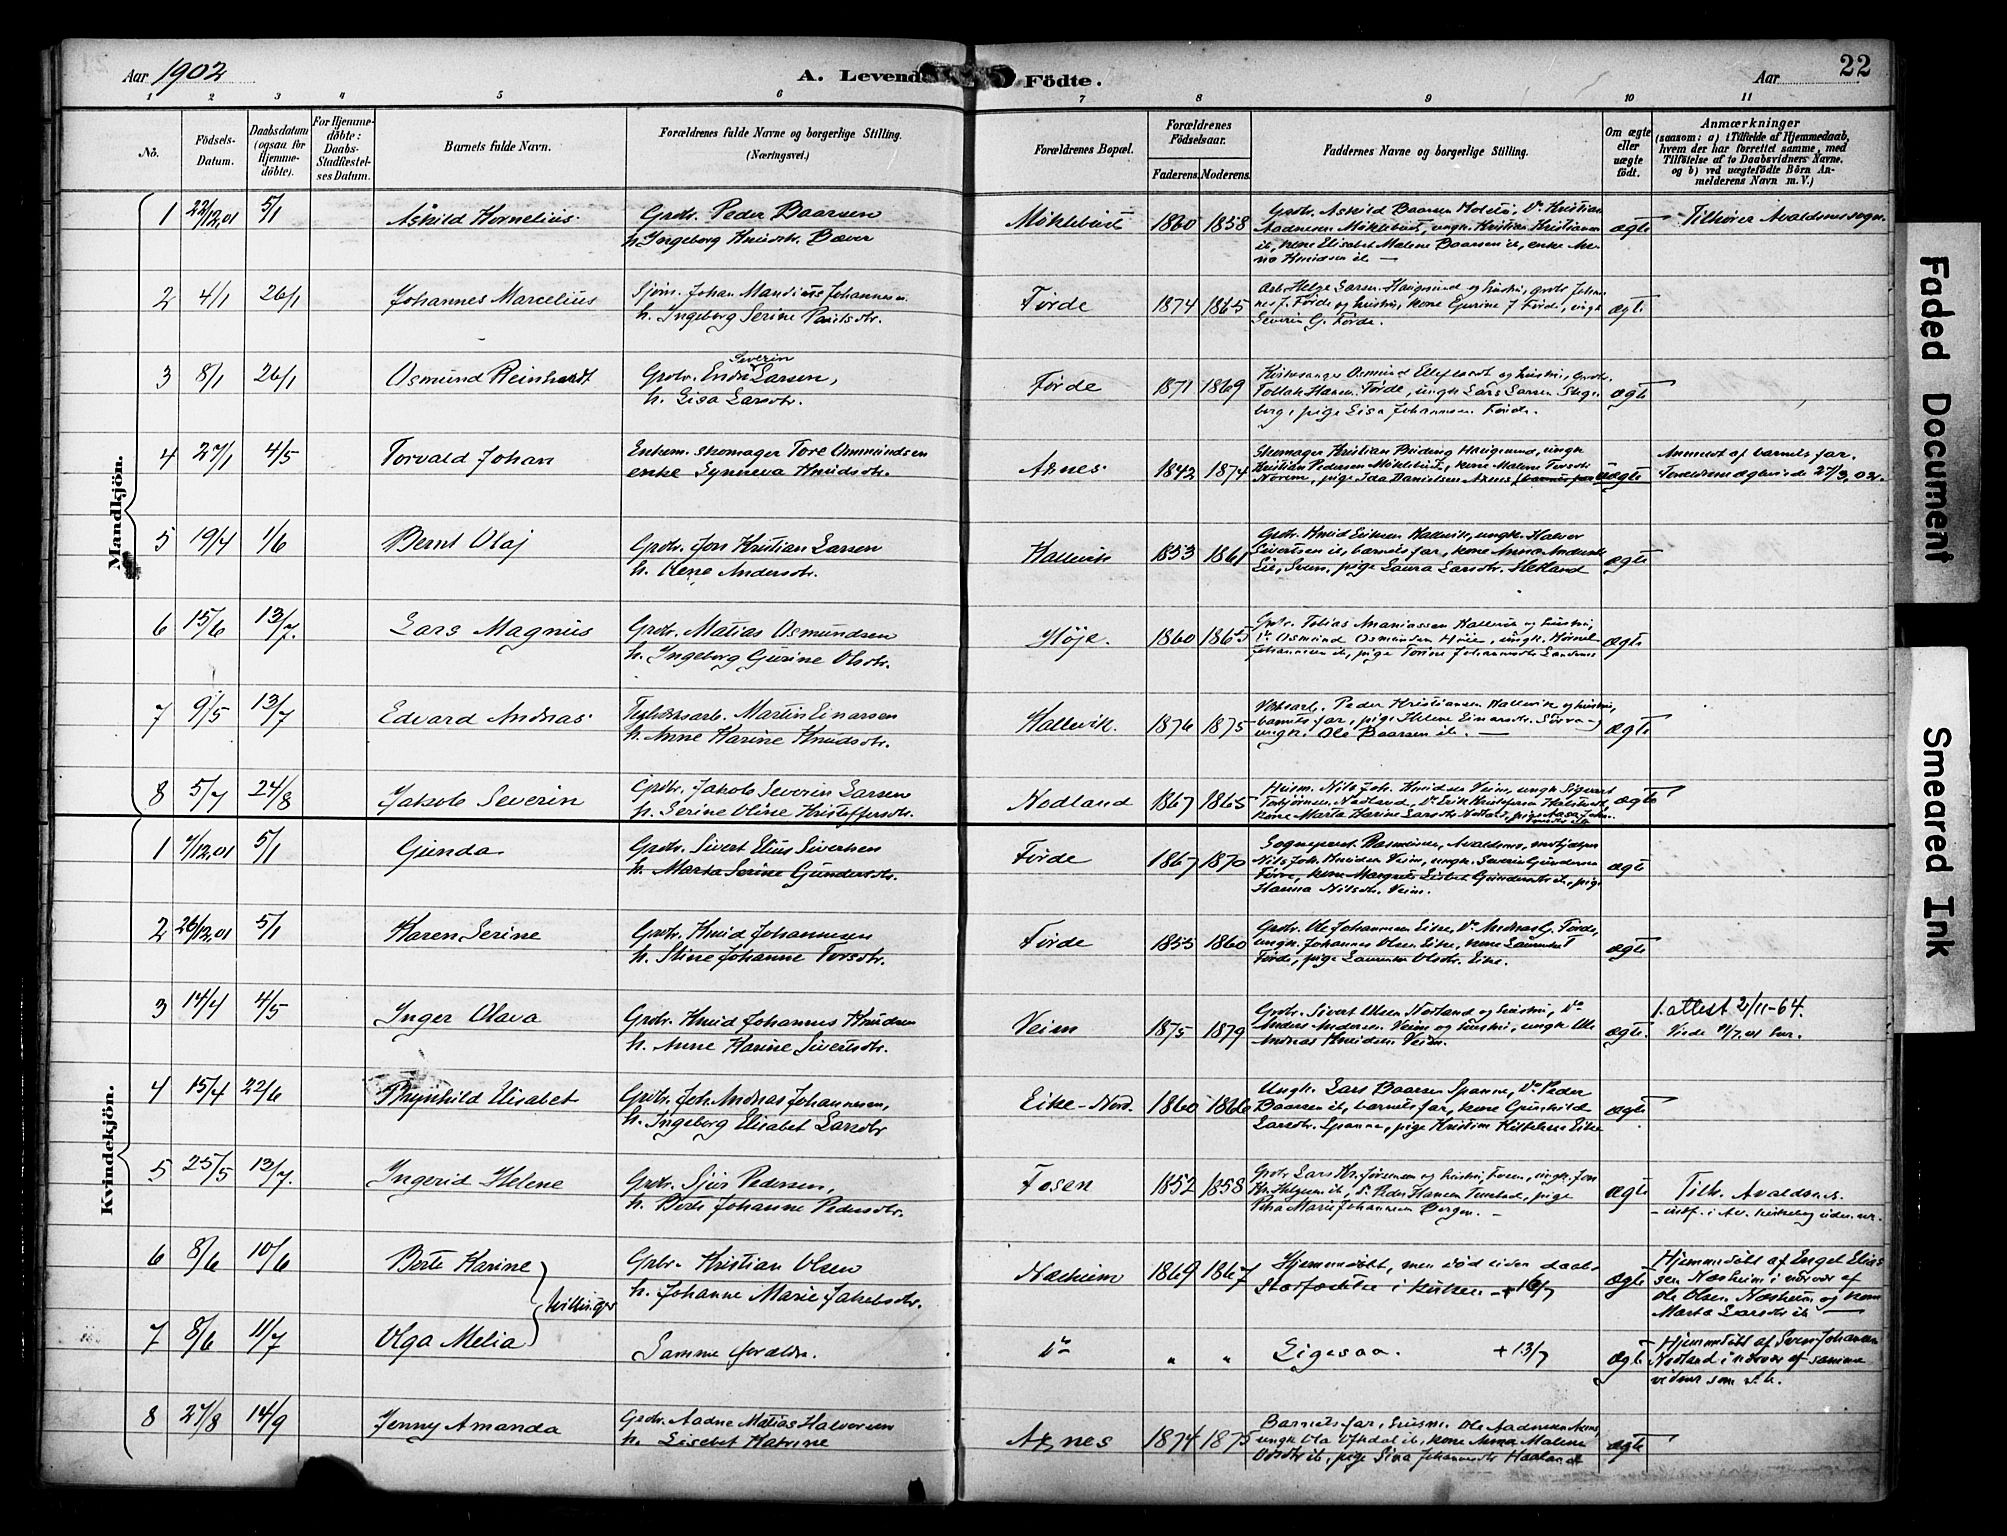 Aar 1902
A. Levende Födte.
Aar 22
1 2 3 4 5 6 7 8 9 10 11
Nô.
Födsels-Datum.
Daabsdatum (ogsaa for Hjemmedöbte).
For Hjemmedöbte: Daabs-Stadfæstelses Datum.
Barnets fulde Navn.
Forældrenes fulde Navne og borgerlige Stilling. (Næringsvei.)
Forældrenes Bopæl.
Forældrenes Födselsaar.
Faderens. Moderens.
Faddernes Navne og borgerlige Stilling.
Om ægte eller uægte födt.
Anmærkninger
(saasom: a) i Tilfælde af Hjemmedaab,
hvem der har forrettet samme, med
Tilföielse af to Daabsvidners Navne.
og b) ved uægtefödte Börn An-
melderens Navn m.V.)
Mandkjön.
1 22/12,01 5/1 Askild Kornelius. Grdbr. Peder Baarsen
h. Ingeborg Knudsdtr. Bæver
Möklebust 1860 1858
Grdbr. Askild Baarsen
Aadnesen Möklebust, ungk. Kristen Kristiansen
ib, kone Elisabet Malene Baarsen ib, enke
Knudsen ib
ægte
Tilhører Avaldsnes sogn.
2 4/1 26/1 Johannes Marcelius Sjøm. Johan Mandius Johannesen
h. Ingeborg Serine
Førde 1874 1865
Arb. Helge Larsen Haugesund og hustru, grdbr. Johan-
nes J. Førde og hustru, kone Gurine J Førde, ungk
Severin G. Førde.
ægte
3 8/1 26/1 Osmund Reinhardt Grdbr. Endre Severin Larsen,
h. Lisa Larsdtr.
Førde 1871 1869
Kirkesanger Osmund og hustru, Grdbr.
Tollak Hansen Førde, ungk Lars Larsen
berg, pige Lisa Johannesen Førde.
ægte
4 27/1 4/5 Torvald Johan Enkem. skomager Tore Ommundsen
enke Synneva Knudsdtr.
Axnes 1842 1874
Skomager Kristian Haugesund, ungk
Kristian Pedersen Möklebust, kone Malene Torsdtr
pige Ida Danielsen Axnes
uægte
Anmeldt af barnets far.
27/3,02.
5 19/4 1/6 Bernt Olaj Grdbr. Jon Kristian Larsen
h. Lene Andersdtr.
Hallevik 1853 1861
Grdbr. Knud Eriksen Hallevik, ungk. Halvor
Sivertsen ib, barnets far, kone Anna Andersdtr
pige Laura Larsdtr. Hetland
ægte
6 15/6 13/7. Lars Magnus Grdbr. Matias Osmundsen
h. Ingeborg Gurine Olsdtr.
Høje. 1860 1865
Grdbr. Tobias Ananiassen Hallevik og hustru,
Do Osmund Osmundsen Høie, ungk. Kornel
Johannesen ib, pige Torine Johannesdtr Sandnes
ægte
7 9/5 13/7 Edvard Andreas Martin Einarsen
h. Anne Karine Knudsdtr.
Hallevik. 1876 1875
Peder Kristiansen Hallevik og hustru,
barnets far, pige Helene Einarsdtr.
ungk. Ole Baarsen ib.
ægte
8 5/7 24/8 Jakob Severin Grdbr. Jakob Severin Larsen
h. Serine Oline Kristoffersdtr.
Nodland 1867 1865
Husm. Nils Joh. Knudsen Veim, ungk Sigvart
Torbjørnsen Nodland, Do Erik Kristofersen
kone Marta Karine Larsdtr Nodland, pige
ægte
Kvindekjön.
1 4/12,01 5/1 Gunda Grdbr. Sivert Elius Sivertsen
h. Marta Serine Gundersdtr.
Førde 1867 1870
Sogneprest Rasmussen, Avaldsnes,
Nils Joh. Knudsen Veim, ungk. Severin Gundersen
Førde, kone Margrete Lisbet Gundersdtr ib, pige
Hanna Nilsdtr. Veim.
ægte
2 26/12,01 5/1 Karen Serine Grdbr. Knud Johannesen
h. Stine Johanne Torsdtr.
Førde 1855 1860
Grdbr. Ole Johannesen Eike, Do Andreas G. Førde,
ungk. Johannes Olsen Eike, kone
Førde, pige Laurentse Olsdtr. Eike.
ægte
3 14/4 4/5 Inger Olava Grdbr. Knud Johannes Knudsen
h. Anne Karine Sivertsdtr.
Veim 1875 1879
Grdbr. Sivert Olsen Nodland og hustru, Do
Anders Andersen Veim og hustru, ungk. Ole
Andreas Knudsen Veim.
ægte.
1. attest 2/11-64.
Viede 11/7,01 her.
4 15/4 22/6 Brynhild Elisabet Grdbr. Joh. Andreas Johannesen,
h. Ingeborg Elisabet Larsdtr
Eike-Nord. 1860 1866
Ungk. Lars Baarsen Spanne, Do Peder
Baarsen ib, barnets far, kone Gunhild
Larsdtr. Spanne, pige Kristine Eike
ægte
5 25/5 13/7. Ingerid Helene Grdbr. Sjur Pedersen,
h. Berte Johanne Pedersdtr.
Fosen 1852 1858
Grdbr Lars Kr. Jørgensen og hustru, Fosen, ungk. Jon
Kr. Helgesen ib, Do Peder Hansen pige
Marie Johannesen Bergen.
ægte
Tilh. Avaldsnes.
- indf. i Av. kirkebog uden nr.
6 8/6 10/6 Berte Karine Grbr. Kristian Olsen
h. Johanne Marie Jakobsdtr.
tvillinger
Næsheim 1869 1867
Hjemmedøbt, men død uden daabs-
stadfæstelse i kirken +
ægte
Hjemmedøbt af Engel Elias-
sen Næsheim i nærvær af
Ole Olsen Næsheim og kone
Marta Larsdtr ib
7 8/6 11/7 Olga Melia Samme forældre.
Do " " Ligesaa. + 13/7
ægte
Hjemmedøbt af Sven Johansen
Nodland i nærvær af samme
vidner som
8 27/8 14/9 Jenny Amanda Grdbr. Aadne Matias Halvorsen
h. Lisebet Katrine
Axnes 1874 1875
Barnets far, husm. Ole Aadnesen Axnes,
ungk Ola ib, kone Anna Malene
ib, pige Sina Johannesdtr Haaland
ægte
Faded Document
Smeared Ink